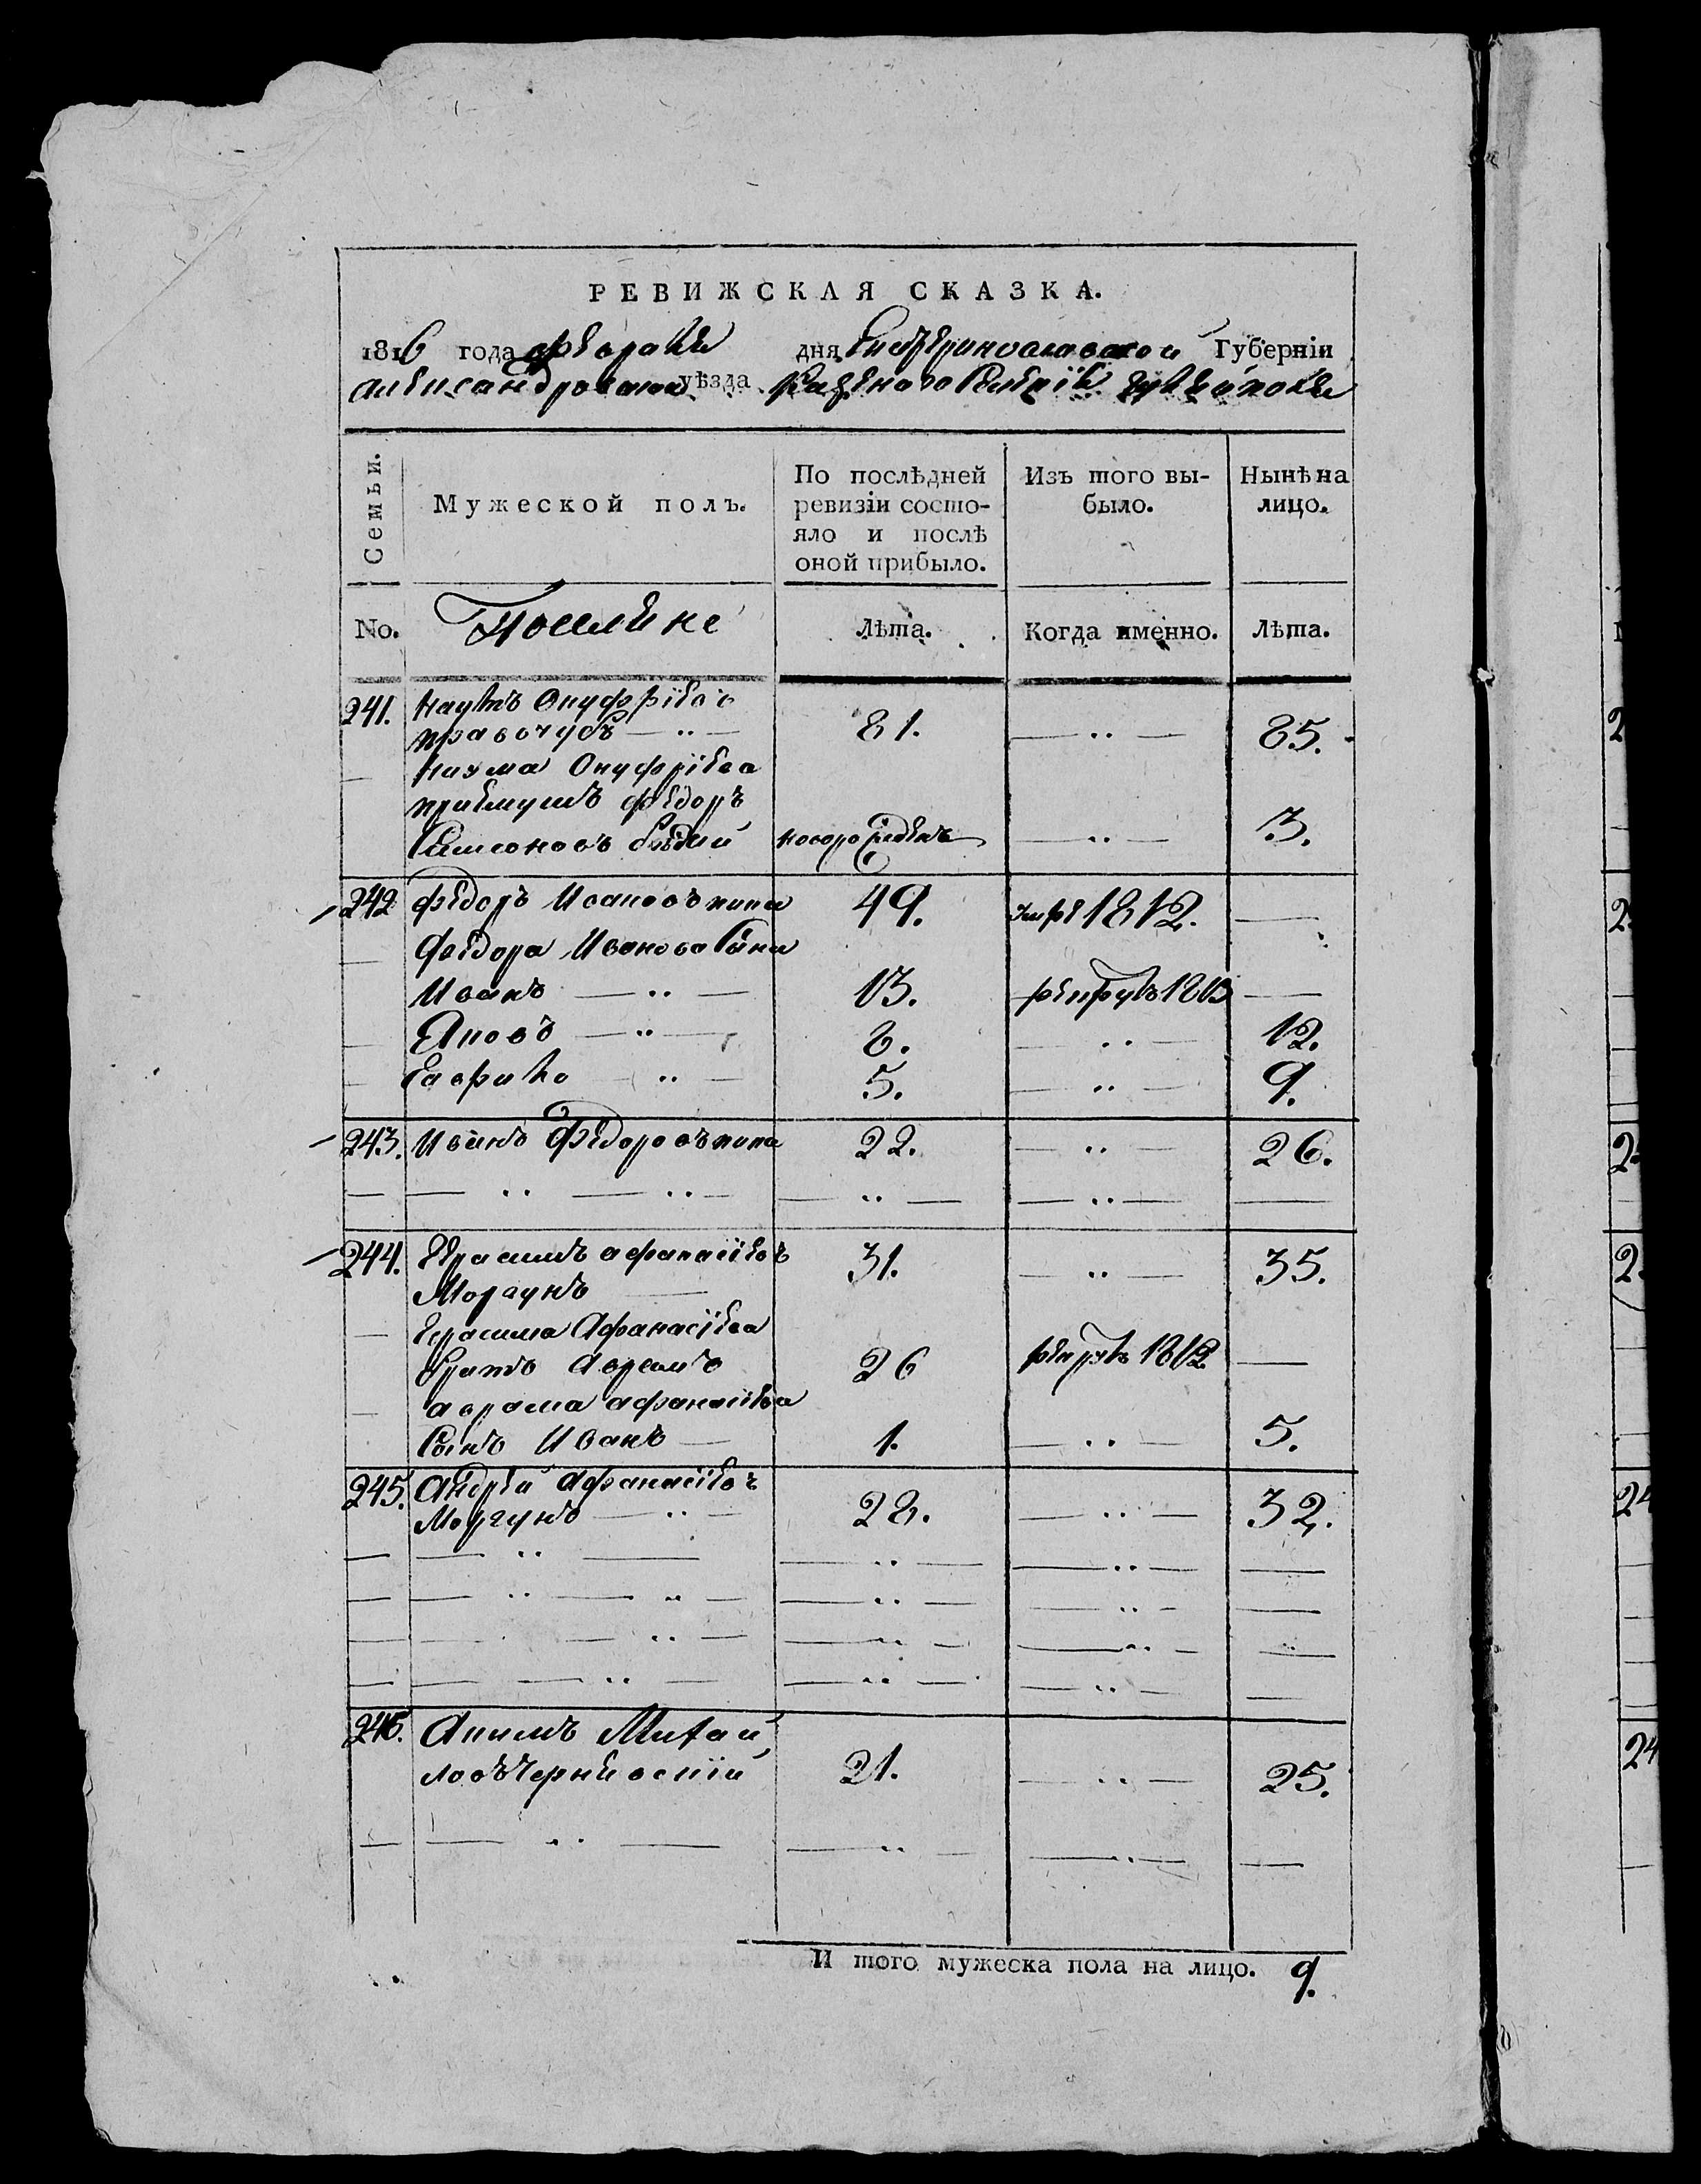 РЕВИЖСКАЯ СКАЗКА.
1816 года февраля дня Екатеринославской Губерніи
александровскаго уѣзда Казеннаго селенія
Семьи. Мужеской полъ. По послѣдней ревизіи состояло и послѣ оной прибыло. Изъ того выбыло. Нынѣ на лицо.
No. Лѣта. Когда именно. Лѣта.
241. Наумъ Онуфріевъ
81. — ·· — 85.
Наума Онуфріева
приемушъ федоръ
Самсоновъ новорожденъ — ·· — 3.
242 федоръ Ивановъ 49. умре 1812. —
Федора Иванова сыни
Иванъ — ·· — 13. рекрутъ 1813 —
Яковъ — ·· — 8. — ·· — 12.
Гаврило — ·· — 5. — ·· — 9.
243. Иванъ Федоровъ 22. — ·· — 26.
244. Герасимъ афанасіевъ 31. — ·· — 35.
Моргунъ —
Герасима Афанасіева
братъ Аврамъ 26 рекрутъ 1812 —
аврама афанасіева
сынъ Иванъ — 1. — ·· — 5.
245. Андрей Афанасіевъ
Моргунъ — ·· — 28. — ·· — 32.
246. Акимъ Михай
ловъ Чернявскій 21. — ·· — 25.
И того мужеска пола на лицо. 9.